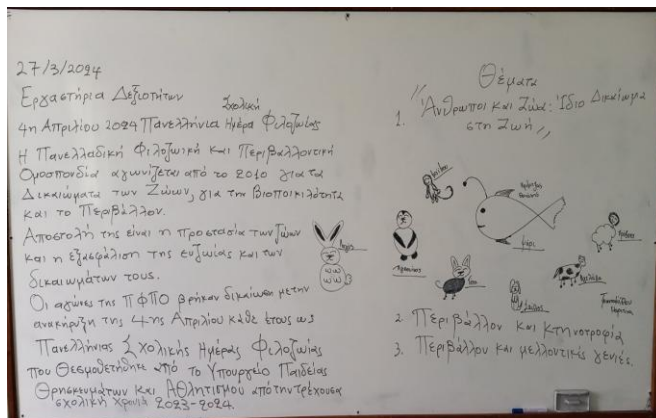 27/3/2024
Εργαστήρια Δεξιοτήτων
Σχολική
4η Απριλίου 2024 Πανελλήνια Ημέρα Φιλοζωίας
Η Πανελλαδική Φιλοζωική και Περιβαλλοντική
Ομοσπονδία αγωνίζεται από το 2010 για τα
Δικαιώματα των Ζώων, για τη βιοποικιλότητα
και το Περιβάλλον.
Αποστολή της είναι η προστασία των ζώων
και η εξασφάλιση της ευζωίας και των
δικαιωμάτων τους.
Οι αγώνες της ΠΦΠΟ βρήκαν δικαίωση με την
ανακήρυξη της 4ης Απριλίου κάθε έτους ως
Πανελλήνιας Σχολικής Ημέρας Φιλοζωίας
που θεσμοθετήθηκε από το Υπουργείο Παιδείας
Θρησκευμάτων και Αθλητισμού από την τρέχουσα
σχολική χρονιά 2023-2024.
Θέματα
1. "Άνθρωποι και Ζώα: Ίδιο Δικαίωμα
στη Ζωή"
2. Περιβάλλον και κτηνοτροφία
3. Περιβάλλον και μελλοντικές γενιές.